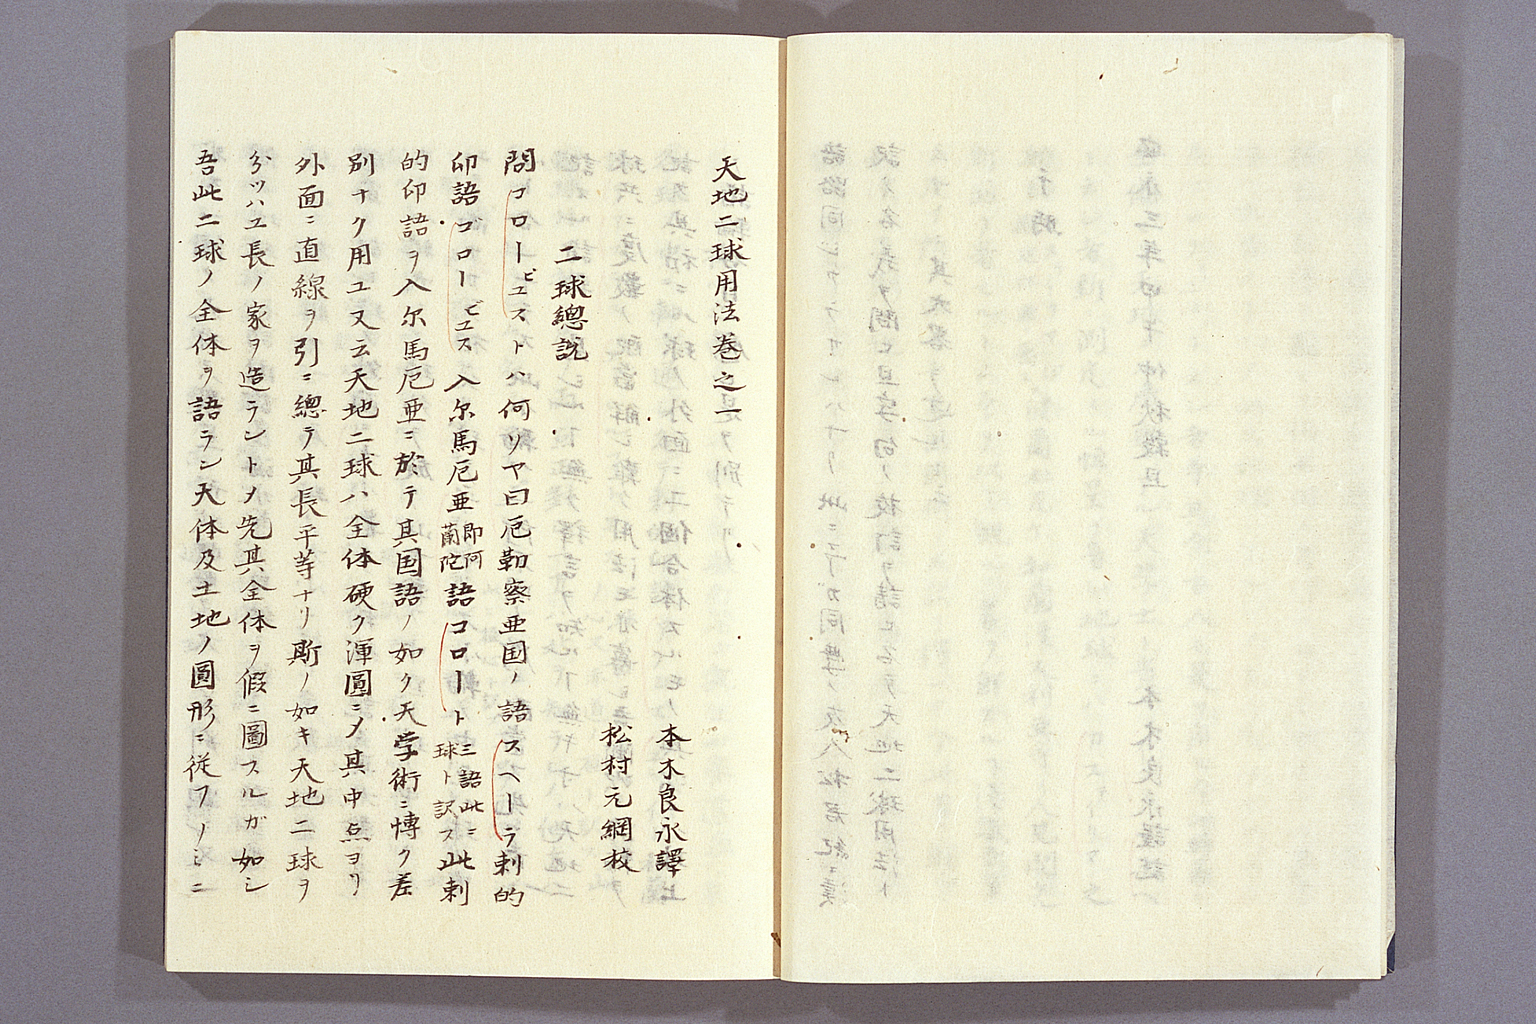 天地二球用法巻之一
本木良永譯上
松村元綱校
二球總説
問コロービユストハ何ソヤ曰厄勒察亜国ノ語スヘーラ剌的
卯語ゴロービユス入尓馬厄亜即阿蘭陀語コロートト三語此ニ球ト訳ス此剌
的卯語ヲ入尓馬厄亜ニ於テ其国語ノ如ク天学術ニ博ク差
別ナク用ユ又云天地二球ハ全体硬ク渾圓ニメ其中点ヨリ
外面ニ直線ヲ引ニ總テ其長平等ナリ斯ノ如キ天地二球ヲ
分ツハ工長ノ家ヲ造ラントメ先其全体ヲ假ニ圖スルガ如シ
吾此二球ノ全体ヲ語ラン天体及土地ノ圓形ニ従フノミニ